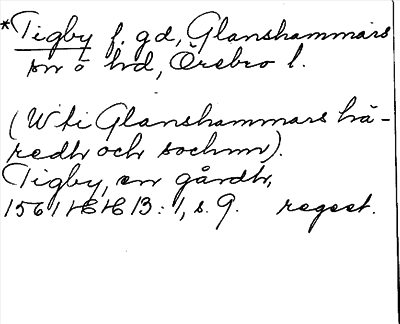 *Tigby f. gd, Glanshammars
sn o hd, Örebro l.
(W ti Glanshammars hä-
redh och sochnn).
Tigby, en gårdh,
1561 HH B: 1, s. 9. regest.